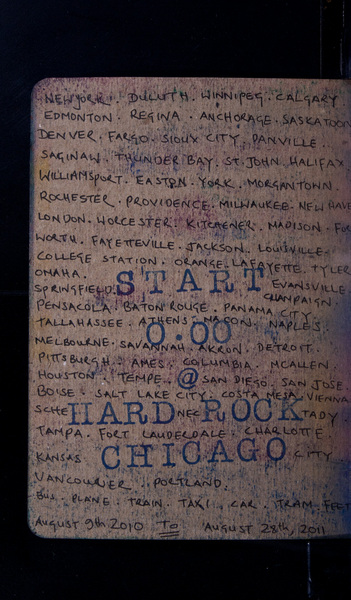 NEWYORK. DULUTH. WINNIPEG. CALGARY
EDMONTON. REGINA. ANCHORAGE. SASKATOON
DENVER. FARGO. SIOUX CITY. DANVILLE.
SAGINAW. THUNDER BAY. ST. JOHN. HALIFAX
WILLIAMSPORT. EASTON. YORK. MORGANTOWN.
ROCHESTER. PROVIDENCE. MILWAUKEE. NEW HAVE
LONDON. WORCESTER. KITCHENER. MADISON. FOR
WORTH. FAYETTEVILLE. JACKSON. LOUISVILLE.
COLLEGE STATION. ORANGE. LAFAYETTE. TYLER
OMAHA.
START
SPRINGFIELD. EVANSVILLE.
CHAMPAIGN.
PENSACOLA. BATON ROUGE. PANAMA CITY.
TALLAHASSEE. ATHENS. MACON. NAPLES.
0:00
MELBOURNE. SAVANNAH. AKRON. DETROIT.
PITTSBURGH. AMES. COLUMBIA. MCALLEN.
HOUSTON. TEMPE. @ SAN DIEGO. SAN JOSE.
BOISE. SALT LAKE CITY. COSTA MESA. VIENNA
SCHE HARD NEC ROCK TADY
TAMPA. FORT LAUDERDALE. CHARLOTTE
KANSAS CHICAGO CITY
VANCOURIER. PORTLAND.
BUS. PLANE. TRAIN. TAXI. CAR. TRAM. FEET
AUGUST 9th 2010 To AUGUST 28th, 2011